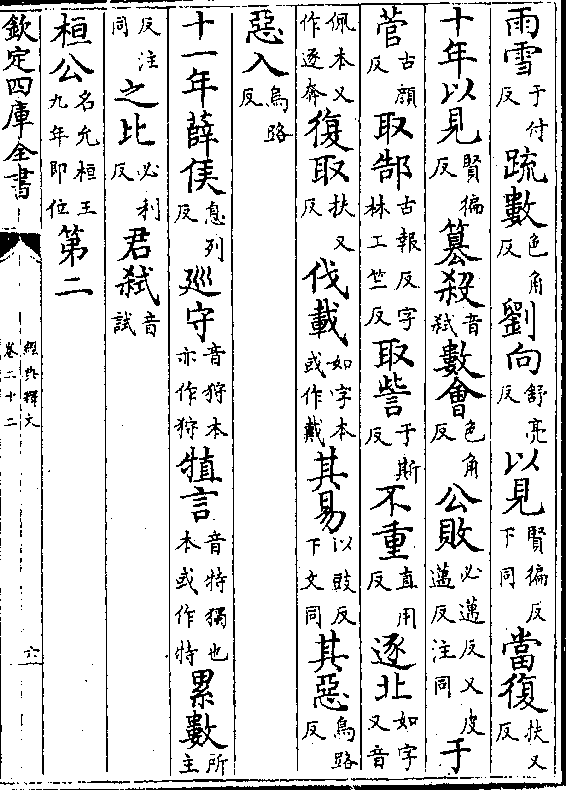 雨雪于付反疏數色角反劉向舒亮反以見賢徧反下同當復扶又反
十年以見賢徧反篡殺音弒數會色角反公敗必邁反又皮邁反注同于
菅古顔反取郜古報反字林工竺反取訾于斯反不重直用反逐北如字又音
佩本又作逐奔復取扶又反伐載如字本或作戴其易以豉反下文同其惡烏路反
惡入烏路反
十一年薛侯息列反巡守音狩本亦作狩犆言音特獨也本或作特累數所主
反注同之比必利反君弒音試
桓公名允桓王九年即位第二
欽定四庫全書
經典釋文
卷二十二
六